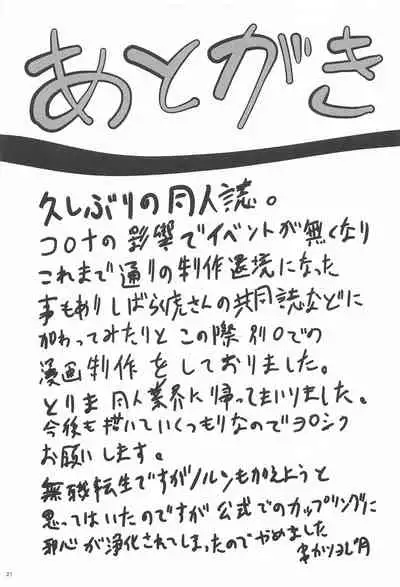 あとがき
久しぶりの同人誌。
コロナの影響でイベントが無くなり
これまで通りの制作環境になった
事もありしばらく虎さんの共同誌などに
加わってみたりとこの際別口での
漫画制作をしておりました。
とりま同人業界に帰ってまいりました。
今後も描いていくつもりなのでヨロシク
お願いします。
無職転生ですがノルンもかえようと
思ってはいたのですが公式でのカップリングに
邪心が浄化されてしまったのでやめました
21